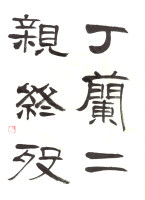 丁蘭二
親終歿